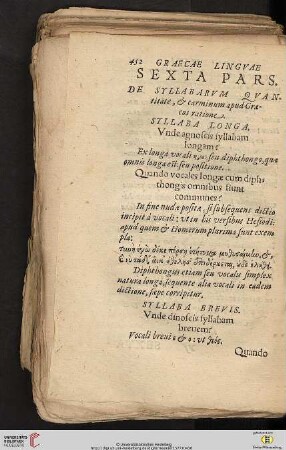 452 GRAECAE LINGVAE
SEXTA PARS.
DE SYLLABARVM QVAN-
titate, & carminum apud Græ-
cos ratione.
SYLLABA LONGA.
Vnde agnoscis syllabam
longam?
Ex longa vocali η, ω: seu diphthongo, quæ
omnis longa est: seu positione.
Quando vocales longæ cum diph-
thongis omnibus fiunt
communes?
In fine nudæ positæ, si subsequens dictio
incipit à vocali: vt in his versibus Hesiodi:
apud quem & Homerum plurima sunt exem-
pla:
Diphthongus etiam seu vocalis simplex
natura longa, sequente alia vocali in eadem
dictione, sæpe corripitur.
SYLLABA BREVIS.
Vnde dinoscis syllabam
breuem?
Vocali breui ε & ο: vt
Quando